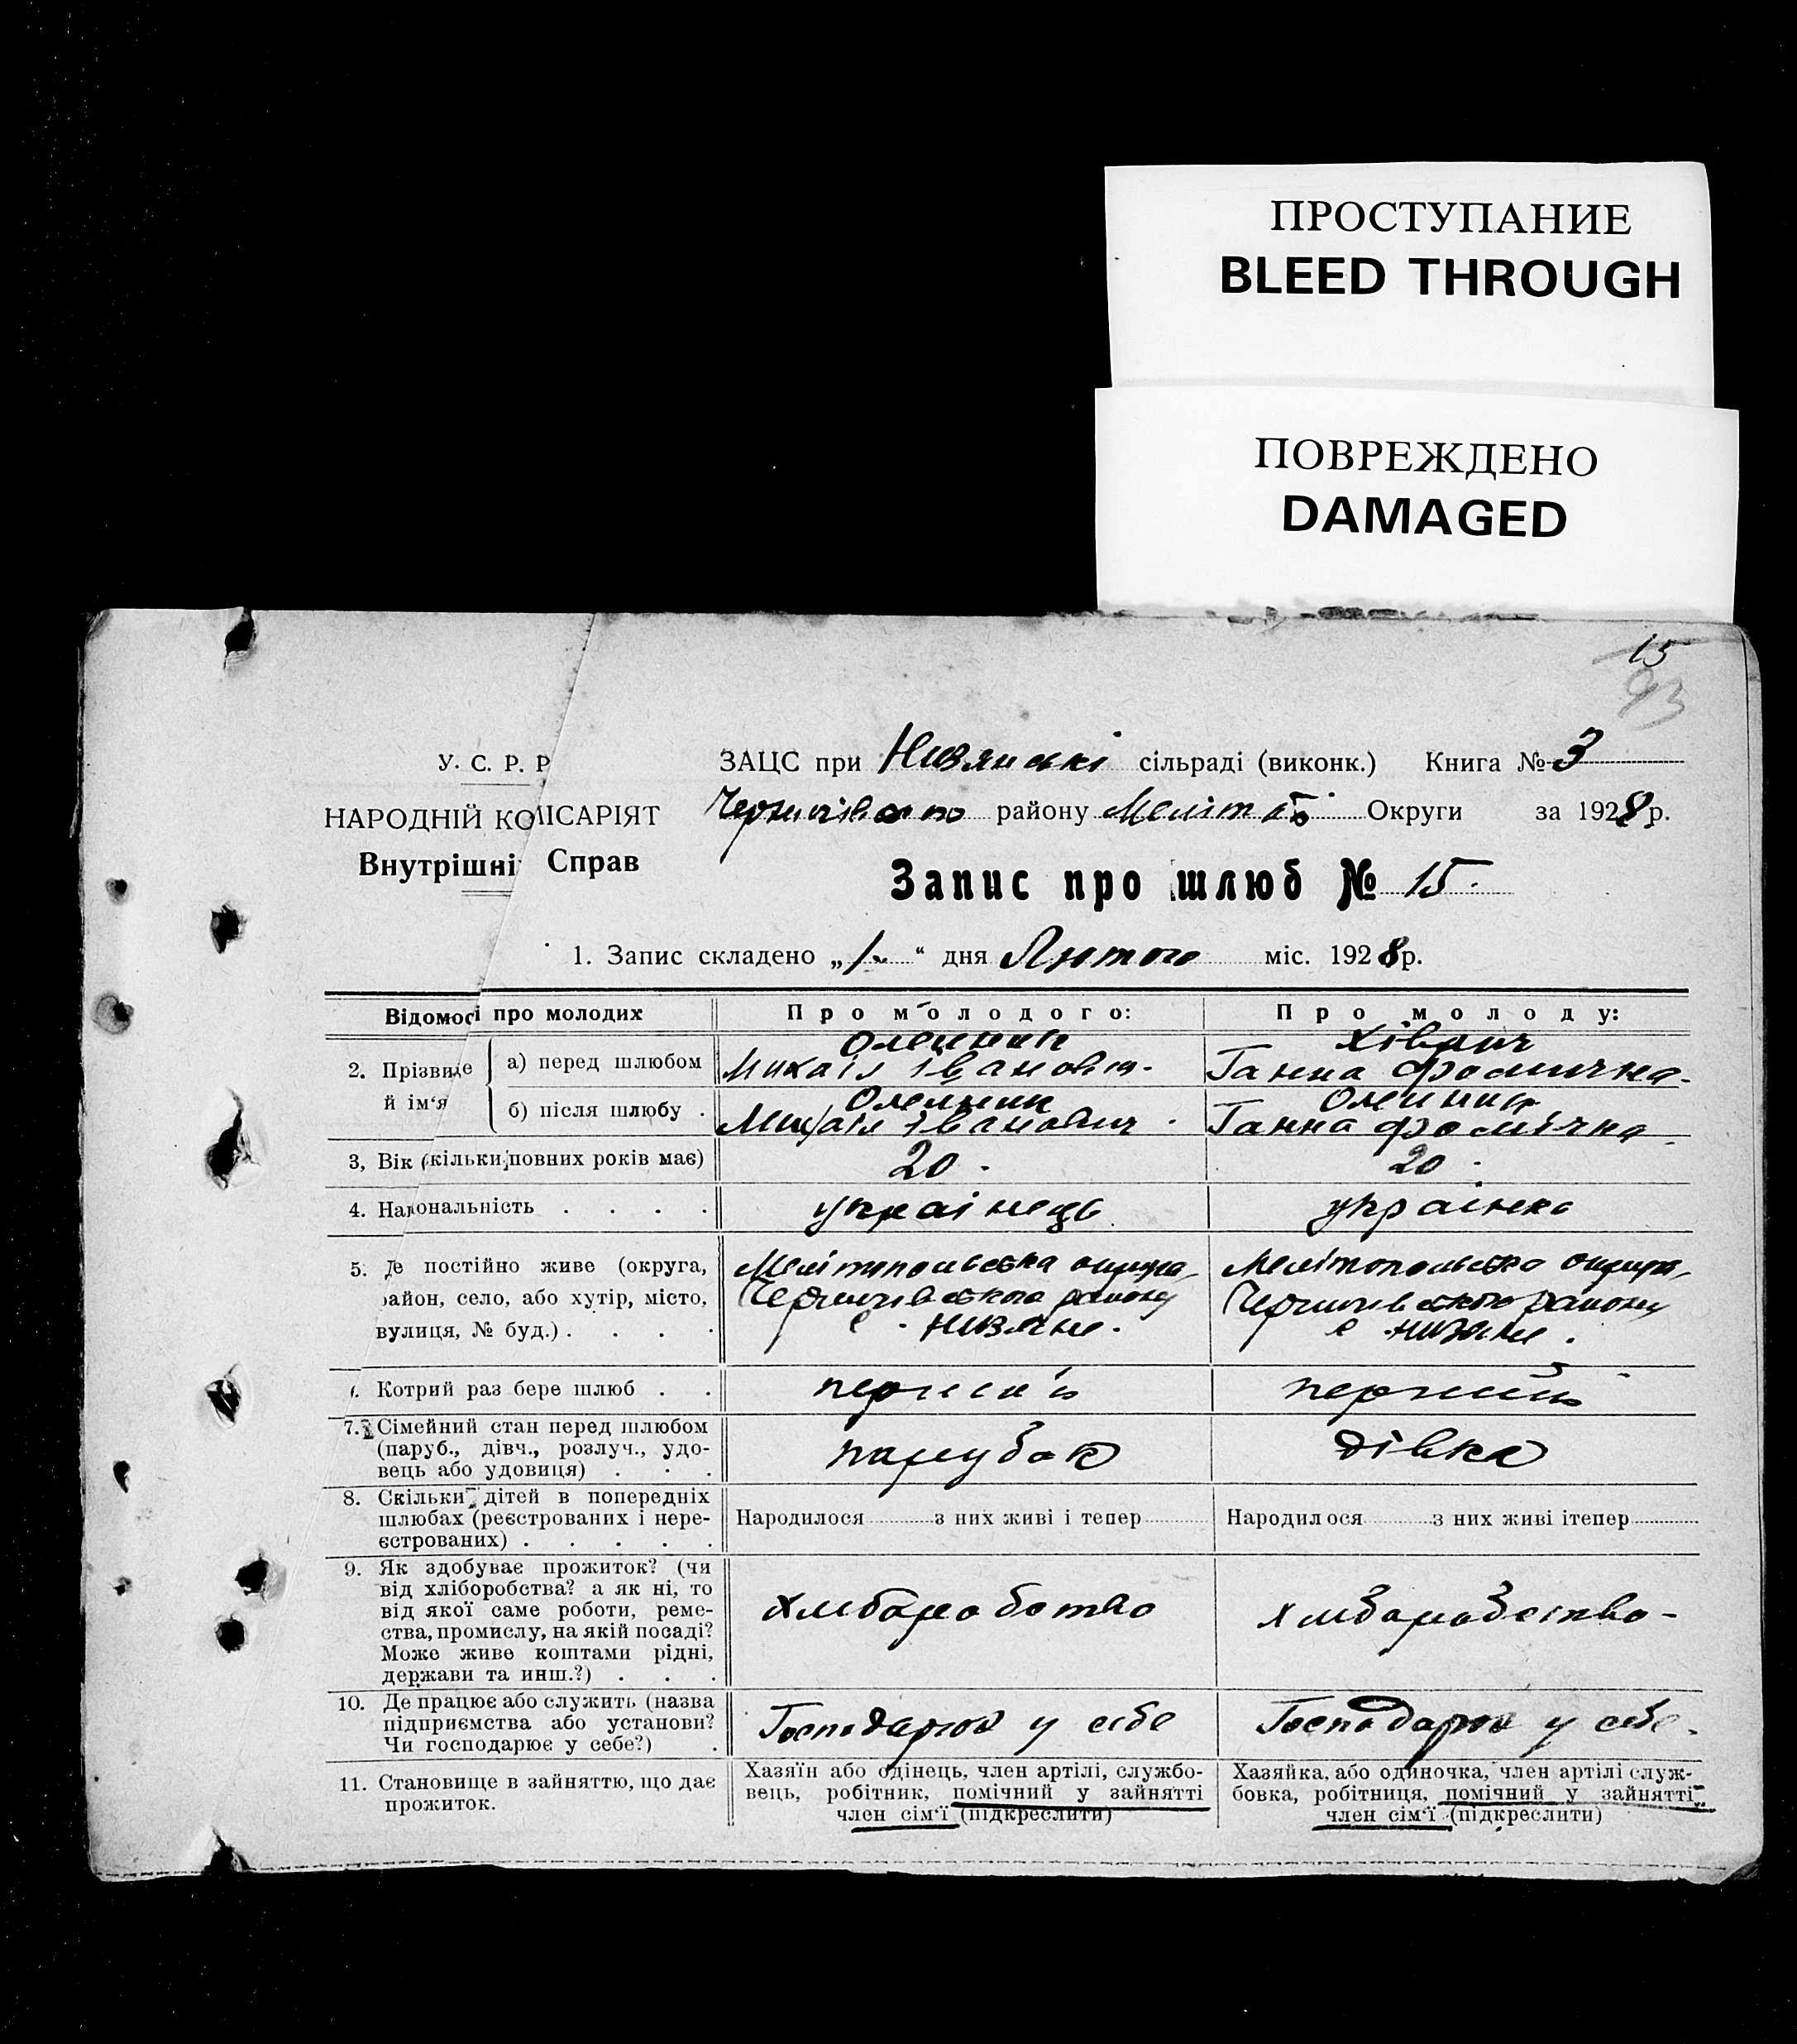 ПРОСТУПАНИЕ
BLEED THROUGH
ПОВРЕЖДЕНО
DAMAGED
15
93
У. С. Р. Р
НАРОДНІЙ КОМІСАРІЯТ
Внутрішні Справ
ЗАЦС при Низянські сільраді (виконк.) Книга № 3
району Меліто Округи за 1928 р.
Запис про шлюб № 15.
1. Запис складено „1" дня Лютого міс. 1928 р.
Відомосі про молодих
Про молодого:
Про молоду:
2. Прізвище й ім'я
а) перед шлюбом
Олейник
Михаіл Іванович.
Ганна Фомична.
б) після шлюбу .
Олейник
Михаіл Іванович.
Олейник
Ганна Фомічна.
3, Вік (скільки повних років має)
20.
20.
4. Національність . . . .
українець
українка
5. Де постійно живе (округа,
район, село, або хутір, місто,
вулиця, № буд.) . . . .
Мелітопольська округа,
Чернигівського району
с. Низяне.
Мелітопольська округа,
Чернигівського району
с. Низяне.
Котрий раз бере шлюб . .
перший
перший
7. Сімейний стан перед шлюбом
(паруб., дівч., розлуч., удо-
вець або удовиця) . . .
парубок
дівка
8. Скільки дітей в попередніх
шлюбах (реєстрованих і нере-
єстрованих) . . . . .
Народилося з них живі і тепер
Народилося з них живі ітепер
9. Як здобуває прожиток? (чи
від хліборобства? а як ні, то
від якої саме роботи, реме-
ства, промислу, на якій посаді?
Може живе коштами рідні,
держави та инш.?) . . .
хліборобство
хліборобство-
10. Де працює або служить (назва
підприємства або установи?
Чи господарює у себе?) .
Господарює у себе
Господарює у себе.
11. Становище в зайняттю, що дає
прожиток.
Хазяїн або одінець, член артілі, службо-
вець, робітник, помічний у зайнятті
член сім'ї (підкреслити)
Хазяйка, або одиночка, член артілі служ-
бовка, робітниця, помічний у зайнятті
член сім'ї (підкреслити)